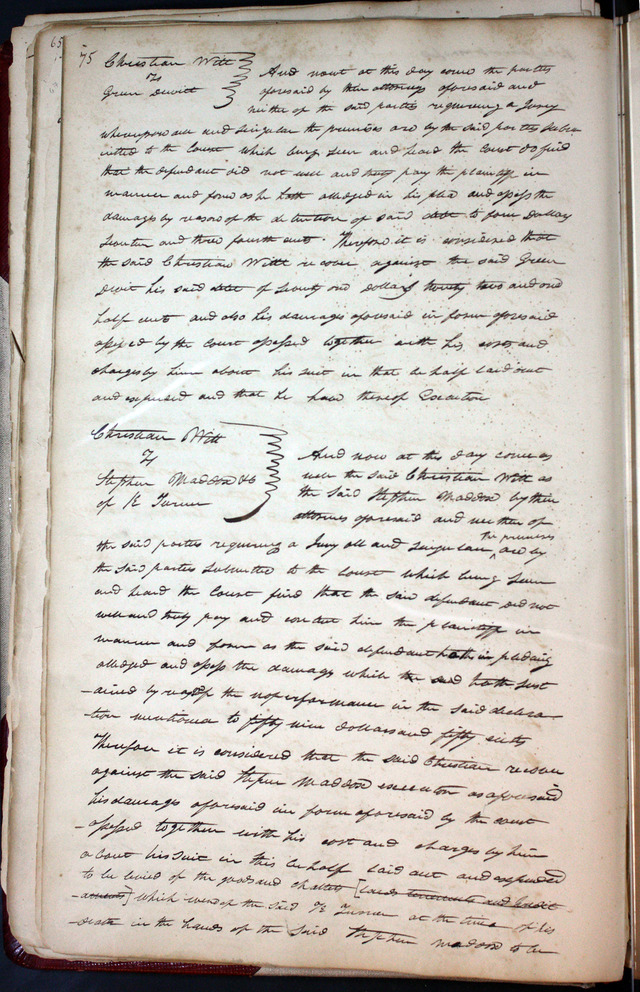 65
75 Christian Witt
vs
Green Dewitt
And now at this day come the parties
aforesaid by their attornies aforesaid and
neither of the said parties requiring a Jury
whereupon all and singular the premises are by the said parties submi
itted to the Court which being seen and heard the Court do find
that the defendant did not well and truly pay the plaintiff in
manner and form as he hath alledged in his plea and assess the
damages by reason of the detention of said debt to four dollars
seventeen and three fourth cents. Therefore it is considered that
the said Christian Witt recover against the said Green
Dewit his said debt of seventy one dollars twenty two and one
half cent and also his damages aforesaid in form aforesaid
assessed by the court assessed together with his costs and
charges by him about his suit in that behalf laid out
and expensed and that he have thereof Execution
Christian Witt
vs
Stephen Maddox
of R Turner
And now at this day come as
well the said Christian Witt as
the said Stephen Maddox by their
attornies aforesaid and neither of
the said parties requiring a Jury all and singular the premises are by
the said parties submitted to the Court which being seen
and heard the Court find that the said defendant did not
well and truly pay and him the plaintiff in
manner and form as the said defendant hath in pleading
alledged and assess the damage which the said hath sust
-ained by reason of the nonperformance in the said declara
-tion mentioned to fifty nine dollars and fifty cents
Therefore it is considered that the said Christian recover
against the said Stephen Maddox executor as aforesaid
his damages aforesaid in form aforesaid by the court
-assessed together with his cost and charges by him
about his suit in this behalf laid out and expended
to be levied of the goods and chattels [lands tenements and
] which were of the said R Turner at the time of his
death in the hands of the said Stephen Maddox to be